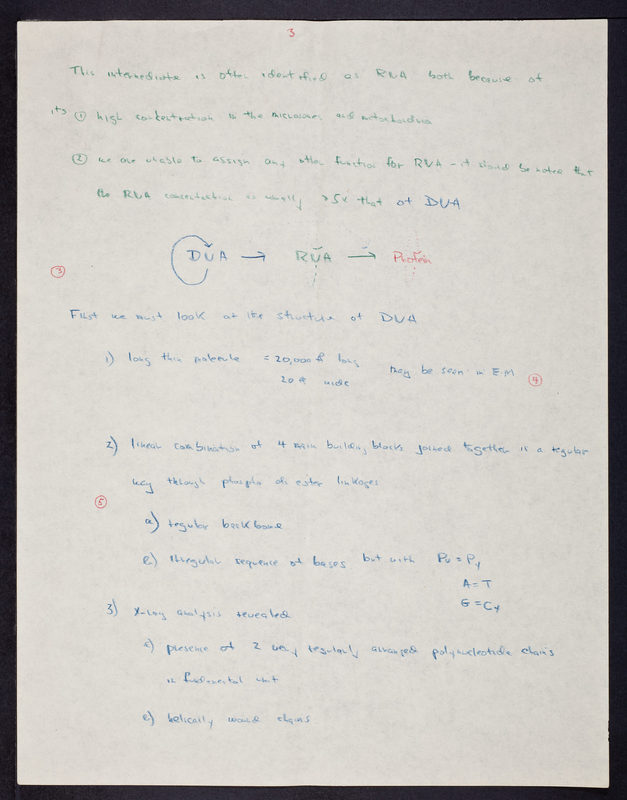 3
This intermediate is often identified as RNA both because of
its ① high concentration in the microsomes and mitochondria
② we are unable to assign any other function for RNA - it should be noted that
the RNA concentration is usually >5x that of DNA
DNA → RNA → Protein
③
First we must look at the structure of DNA
1) long thin molecule = 20,000 Å long may be seen in E.M ④
20 Å wide
2) linear combination of 4 main building blocks joined together in a regular
way through phospho di ester linkages
⑤
a) regular backbone
b) irregular sequence of bases but with Pu = Py
A = T
G = Cy
3) X-ray analysis revealed
a) presence of 2 very regularly arranged polynucleotide chains
in fundamental unit
b) helically wound chains